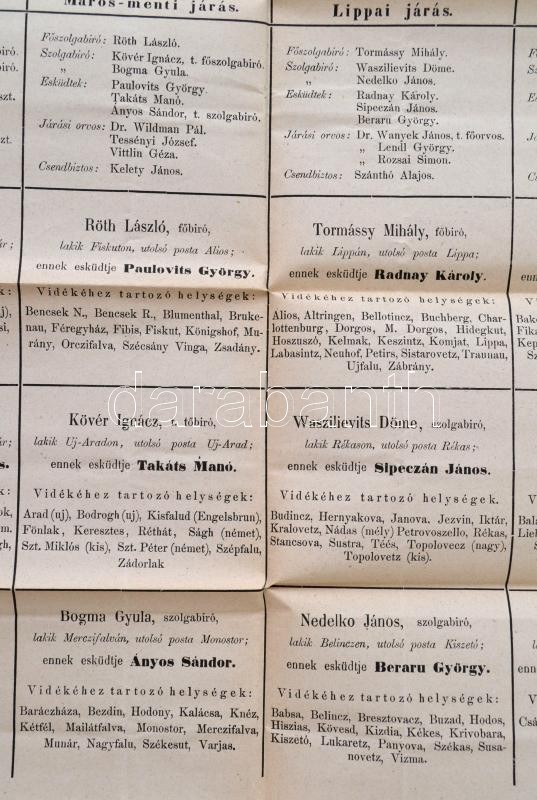 Maros-menti járás.
Főszolgabiró: Röth László.
Szolgabiró: Kövér Ignácz, t. főszolgabiró.
„ Bogma Gyula.
Esküdtek: Paulovits György.
Takáts Manó.
Ányos Sándor, t. szolgabiró.
Járási orvos: Dr. Wildman Pál.
Tessényi József.
Vittlin Géza.
Csendbiztos: Kelety János.
Röth László, főbiró,
lakik Fiskuton, utolsó posta Alios;
ennek esküdtje Paulovits György.
Vidékéhez tartozó helységek:
Bencsek N., Bencsek R., Blumenthal, Bruke-
nau, Féregyház, Fibis, Fiskut, Königshof, Mu-
rány, Orczifalva, Szécsány Vinga, Zsadány.
Kövér Ignácz, t. főbiró,
lakik Uj-Aradon, utolsó posta Uj-Arad;
ennek esküdtje Takáts Manó.
Vidékéhez tartozó helységek:
Arad (uj), Bodrogh (uj), Kisfalud (Engelsbrun),
Fönlak, Keresztes, Réthát, Ságh (német),
Szt. Miklós (kis), Szt. Péter (német), Szépfalu,
Zádorlak
Bogma Gyula, szolgabiró,
lakik Merczifalván, utolsó posta Monostor;
ennek esküdtje Ányos Sándor.
Vidékéhez tartozó helységek:
Baráczháza, Bezdin, Hodony, Kalácsa, Knéz,
Kétfél, Mailátfalva, Monostor, Merczifalva,
Munár, Nagyfalu, Székesut, Varjas.
Lippai járás.
Főszolgabiró: Tormássy Mihály.
Szolgabiró: Waszilievits Döme.
„ Nedelko János.
Esküdtek: Radnay Károly.
Sipeczán János.
Beraru György.
Járási orvos: Dr. Wanyek János, t. főorvos.
„ Lendl György.
„ Rozsai Simon.
Csendbiztos: Szánthó Alajos.
Tormássy Mihály, főbiró,
lakik Lippán, utolsó posta Lippa;
ennek esküdtje Radnay Károly.
Vidékéhez tartozó helységek:
Alios, Altringen, Bellotincz, Buchberg, Char-
lottenburg, Dorgos, M. Dorgos, Hidegkut,
Hoszuszó, Kelmak, Keszintz, Komjat, Lippa,
Labasintz, Neuhof, Petirs, Sistarovetz, Traunau,
Ujfalu, Zábrány.
Waszilievits Döme, szolgabiró,
lakik Rékason, utolsó posta Rékas;
ennek esküdtje Sipeczán János.
Vidékéhez tartozó helységek.
Budincz, Hernyakova, Janova, Jezvin, Iktár,
Kralovetz, Nádas (mély) Petrovoszello, Rékas,
Stancsova, Sustra, Téés, Topolovecz (nagy),
Topolovetz (kis).
Nedelko János, szolgabiró,
lakik Belinczen, utolsó posta Kiszető;
ennek esküdtje Beraru György.
Vidékéhez tartozó helységek:
Babsa, Belincz, Bresztovacz, Buzad, Hodos,
Hiszias, Kövesd, Kizdia, Kékes, Krivobara,
Kiszető, Lukaretz, Panyova, Székas, Susa-
novetz, Vizma.
darabanth